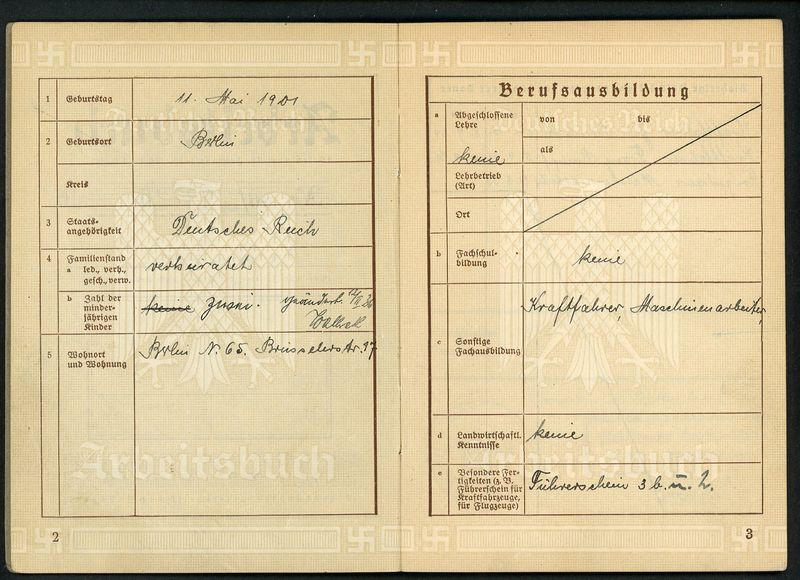 1 Geburtstag 11. Mai 1901
2 Geburtsort Berlin
Kreis
3 Staats-
angehörigkeit Deutsches Reich
4 Familienstand
a led., verh.,
gesch., verw. verheiratet
b Zahl der
minder-
jährigen
Kinder keine zwei. geändert.
5 Wohnort
und Wohnung Berlin N. 65. Brüsselerstr. 37
Arbeitsbuch
2
Berufsausbildung
a Abgeschlossene
Lehre
keine
von bis
als
Lehrbetrieb
(Art)
Ort
b Fachschul-
bildung keine
Kraftfahrer, Maschinenarbeiter,
c Sonstige
Fachausbildung
d Landwirtschaftl.
Kenntnisse keine
e Besondere Fer-
tigkeiten (z. B.
Führerschein für
Kraftfahrzeuge,
für Flugzeuge) Führerschein 3 b. u. 2.
Deutsches Reich
Arbeitsbuch
3